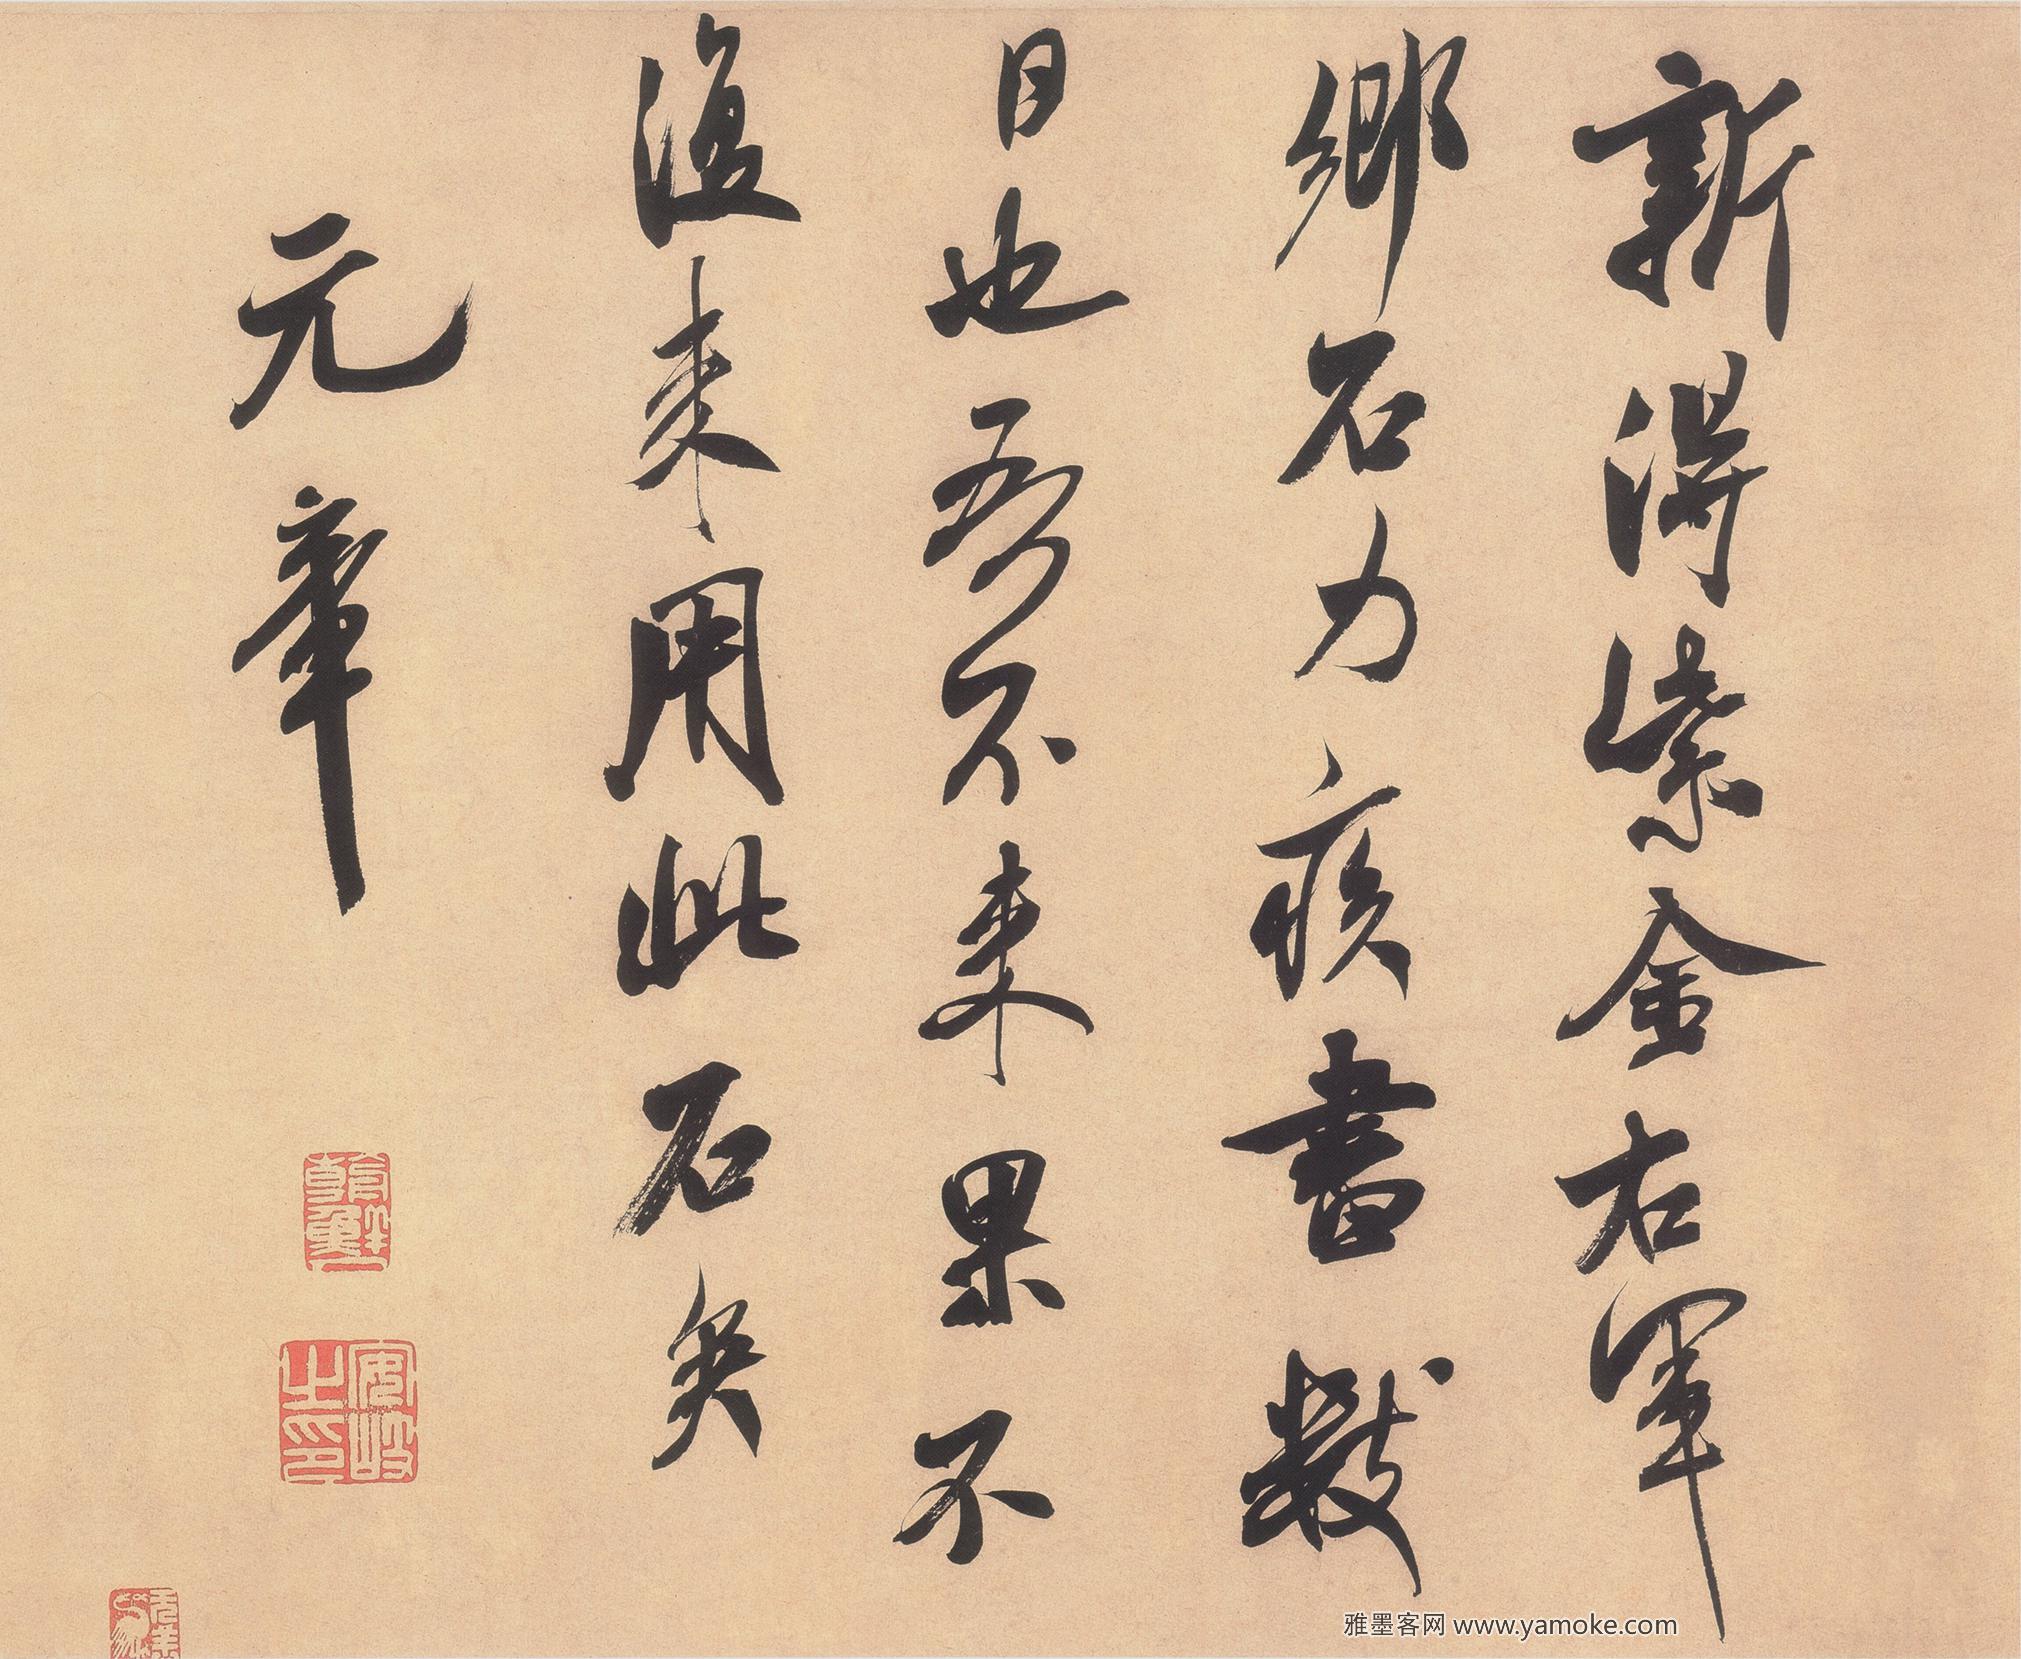 新得紫金右軍
鄉石力疾書數
日也吾不來果不
復來用此石矣
元章
雅墨客网 www.yamoke.com